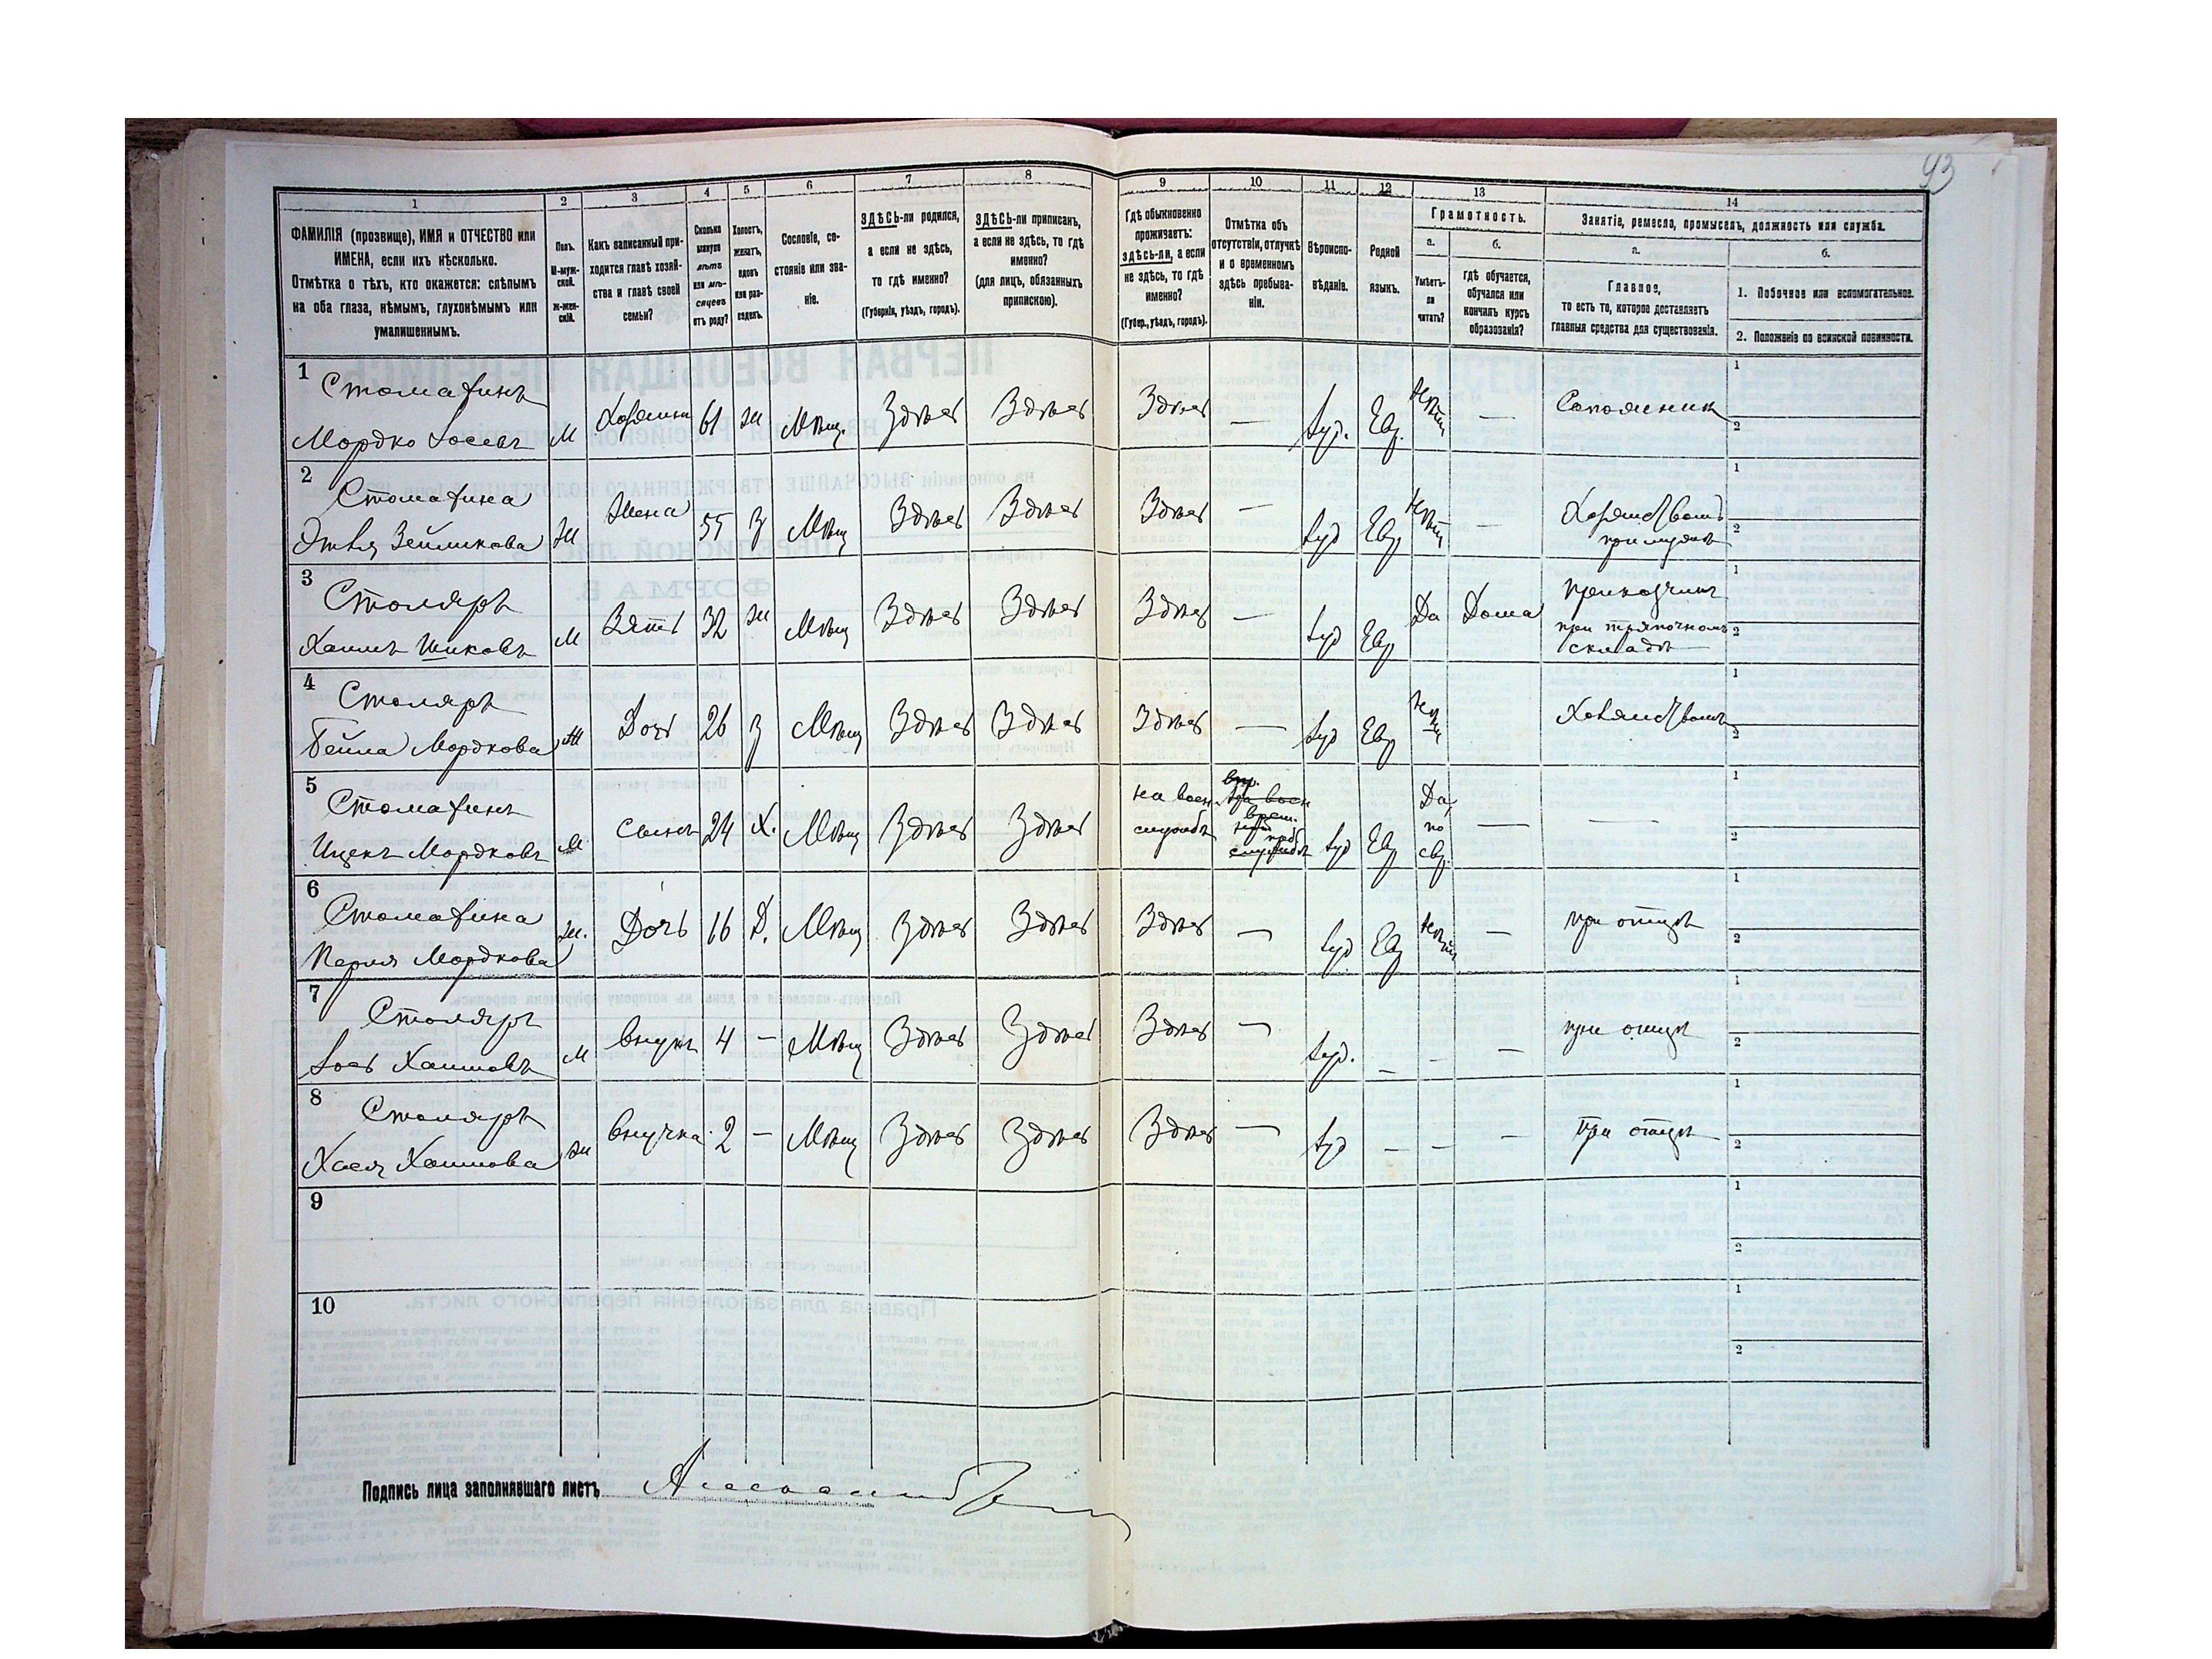 93
1 2 3 4 5 6 7 8 9 10 11 12 13 14
ФАМИЛІЯ (прозвище), ИМЯ и ОТЧЕСТВО или
ИМЕНА, если ихъ нѣсколько.
Отмѣтка о тѣхъ, кто окажется: слѣпымъ
на оба глаза, нѣмымъ, глухонѣмымъ или
умалишеннымъ.
Полъ.
М-муж-
ской.
ж-жен-
скій.
Какъ записанный при-
ходится главѣ хозяй-
ства и главѣ своей
семьи?
Сколько
минуло
лѣтъ
или мѣ-
сяцевъ
отъ роду?
Холостъ,
женатъ,
вдовъ
или раз-
веденъ.
Сословіе, со-
стояніе или зва-
ніе.
ЗДѢСЬ-ли родился,
а если не здѣсь,
то гдѣ именно?
(Губернія, уѣздъ, городъ).
ЗДѢСЬ-ли приписанъ,
а если не здѣсь, то гдѣ
именно?
(для лицъ, обязанныхъ
припискою).
Гдѣ обыкновенно
проживаетъ:
здѣсь-ли, а если
не здѣсь, то гдѣ
именно?
(Губер., уѣздъ, городъ).
Отмѣтка объ
отсутствіи, отлучкѣ
и о временномъ
здѣсь пребыва-
ніи.
Вѣроиспо-
вѣданіе.
Родной
языкъ.
Грамотность.
а.
Умѣетъ-
ли
читать?
б.
гдѣ обучается,
обучался или
кончилъ курсъ
образованія?
Занятіе, ремесло, промыселъ, должность или служба.
а.
Главное,
то есть то, которое доставляетъ
главныя средства для существованія.
б.
1. Побочное или вспомогательное.
2. Положеніе по воинской повинности.
1 Стомахинъ
Мордко Іосевъ М Хозяинъ 61 ж Мѣщ. Здѣсь Здѣсь Здѣсь — Іуд. Евр. Нѣтъ — Сапожникъ 1 2
2 Стомахина
Этля Зейликова Ж Жена 55 З Мѣщ Здѣсь Здѣсь Здѣсь — Іуд Евр Нѣтъ — Хозяйствомъ 1
при мужѣ 2
3 Столяръ
Хаимъ Ициковъ М Зять 32 ж Мѣщ Здѣсь Здѣсь Здѣсь — Іуд Евр Да Дома Приказчикъ 1
при тряпочномъ 2
складѣ
4 Столяръ
Бейла Мордкова Ж Дочь 26 З Мѣщ Здѣсь Здѣсь Здѣсь — Іуд Евр Нѣтъ Хозяйствомъ 1 2
5 Стомахинъ
Ицекъ Мордковъ М Сынъ 24 Х. Мѣщ Здѣсь Здѣсь на воен. службѣ Іуд Евр Да, по евр. — — 1 2
6 Стомахина
Перля Мордкова Ж. Дочь 16 Д. Мѣщ Здѣсь Здѣсь Здѣсь — Іуд Евр Нѣтъ — при отцѣ 1 2
7 Столяръ
Іось Хаимовъ М Внукъ 4 — Мѣщ Здѣсь Здѣсь Здѣсь — Іуд. — — — при отцѣ 1 2
8 Столяръ
Хася Хаимова Ж Внучка 2 — Мѣщ Здѣсь Здѣсь Здѣсь — Іуд — — — При отцѣ 1 2
9 1 2
10 1 2
Подпись лица заполнявшаго листъ